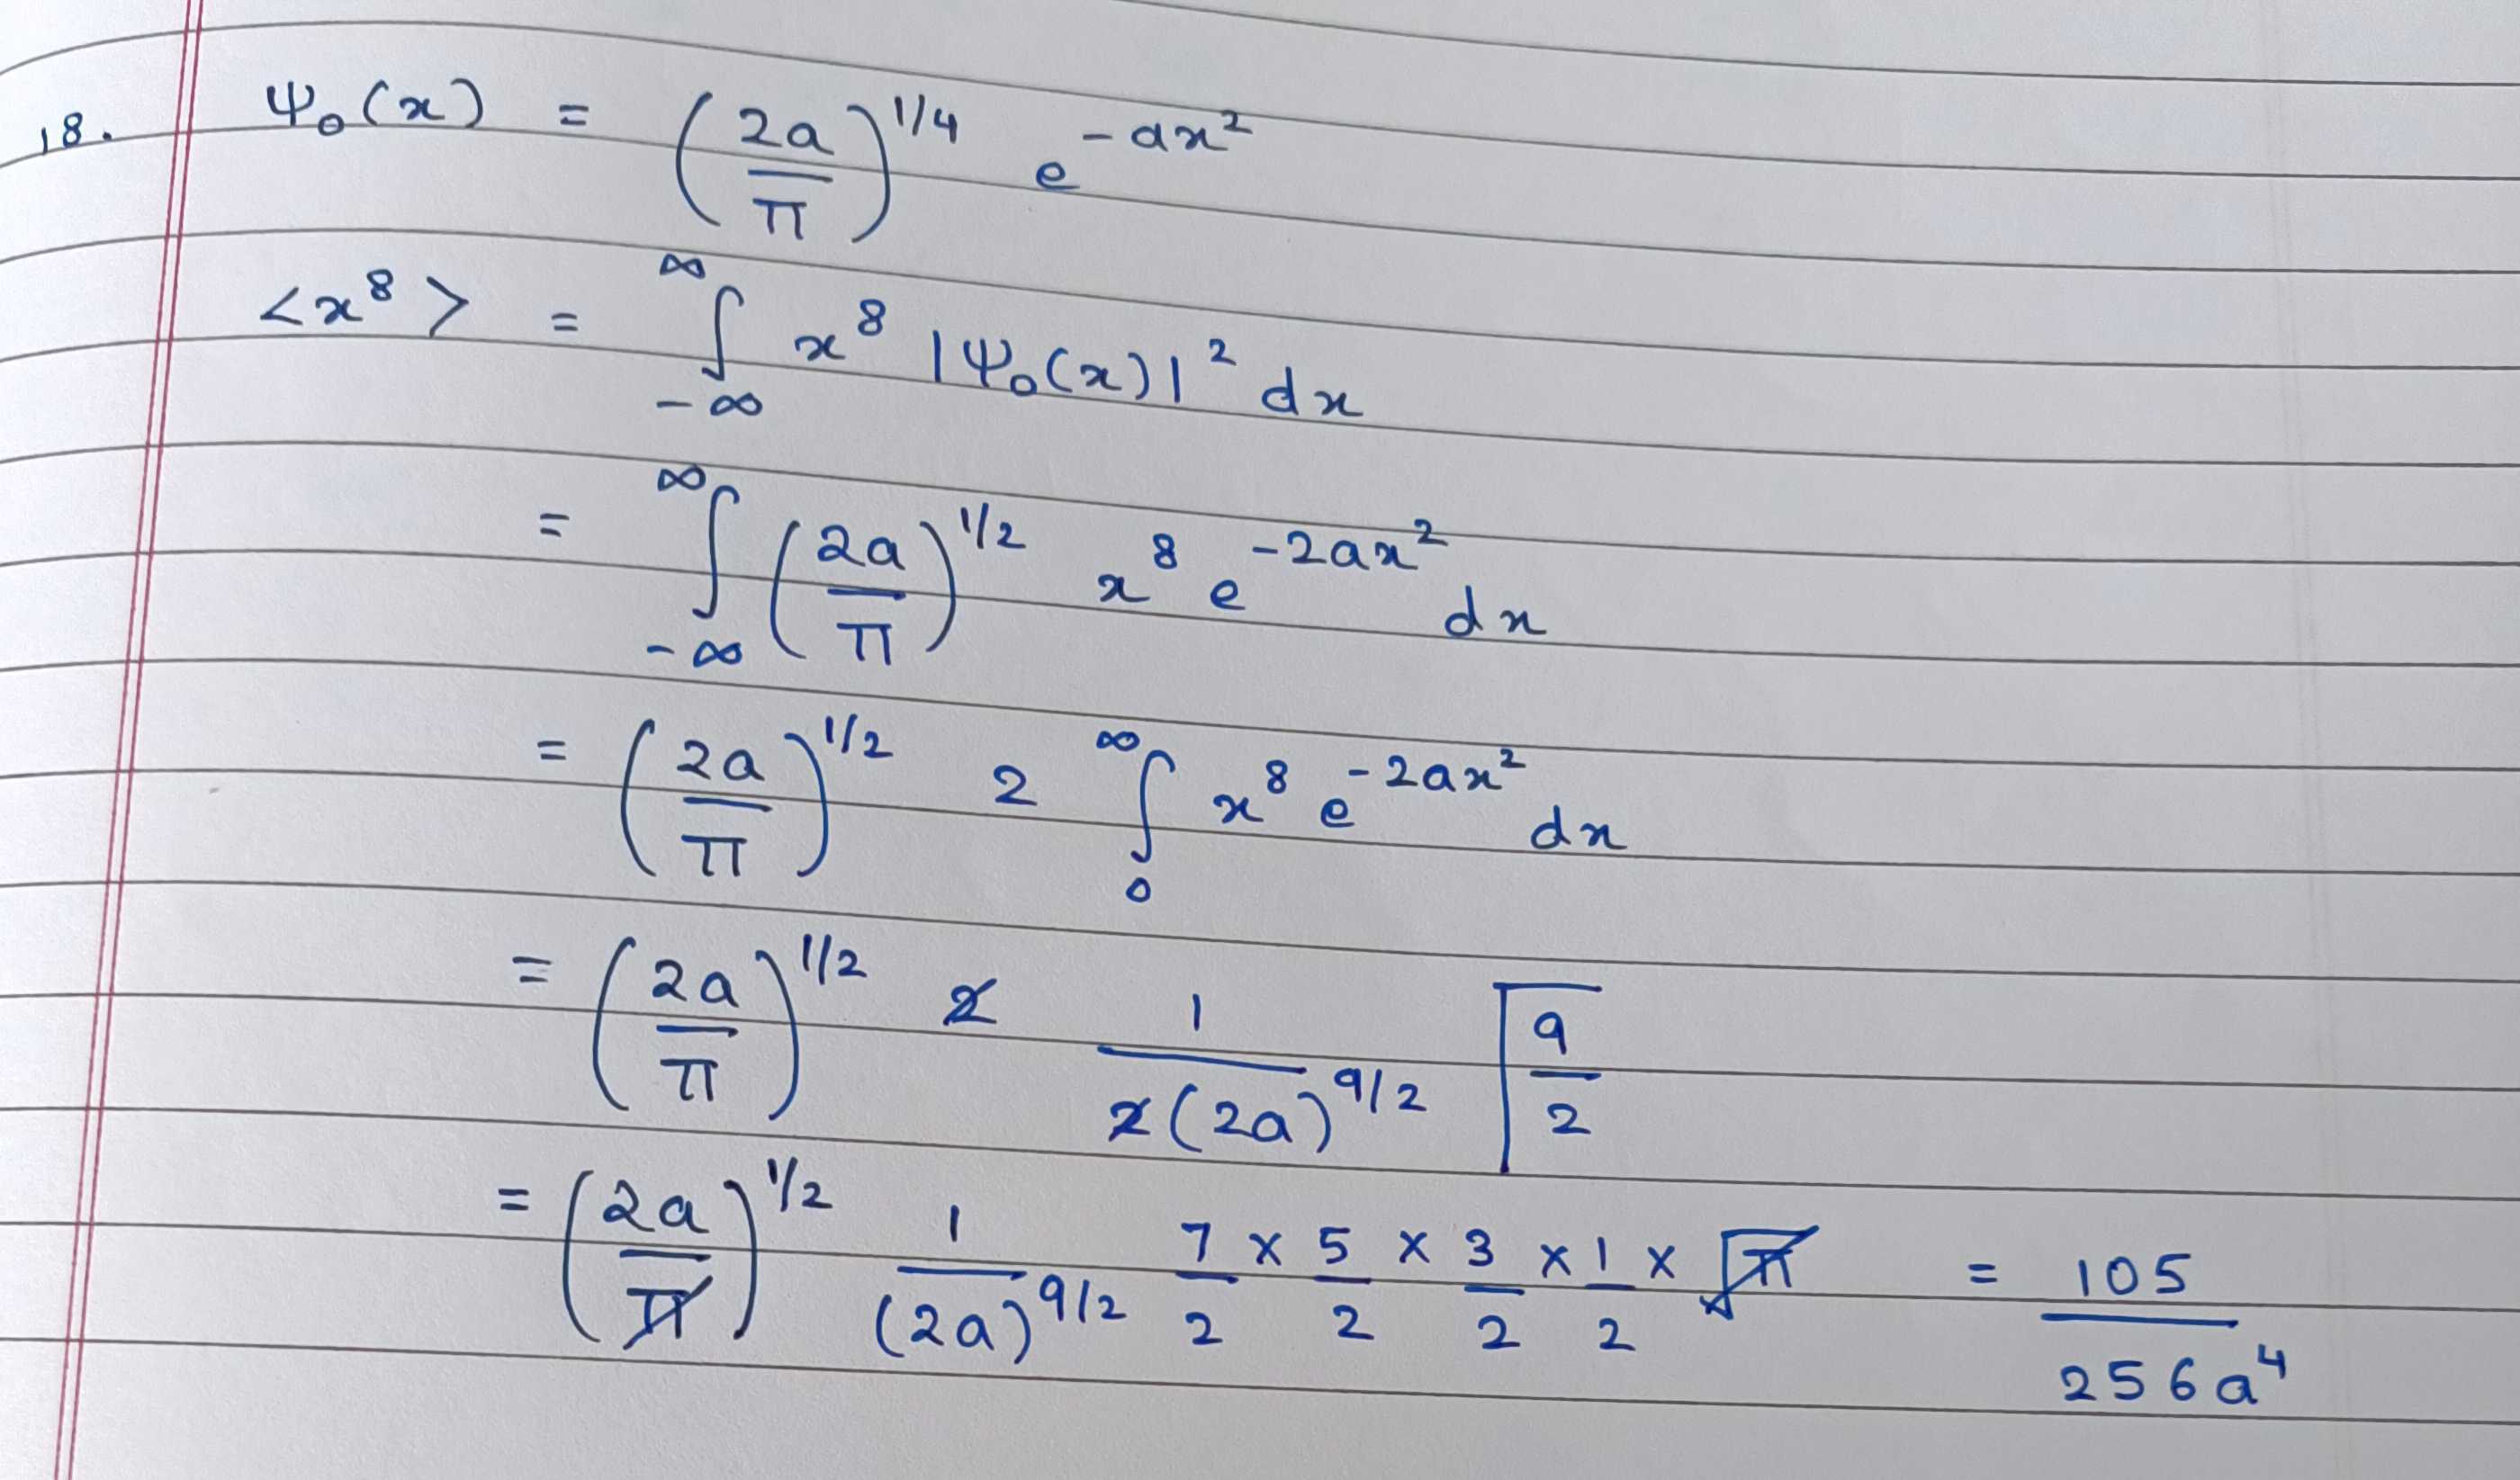 18. Ψ₀(x) = (2a/π)^1/4 e^-ax²
<x⁸> = ∫_-∞^∞ x⁸ |Ψ₀(x)|² dx
= ∫_-∞^∞ (2a/π)^1/2 x⁸ e^-2ax² dx
= (2a/π)^1/2 2 ∫_0^∞ x⁸ e^-2ax² dx
= (2a/π)^1/2 2 1/(2(2a)^9/2) Γ9/2
= (2a/π)^1/2 1/(2a)^9/2 7/2 × 5/2 × 3/2 × 1/2 × √π = 105/256a⁴